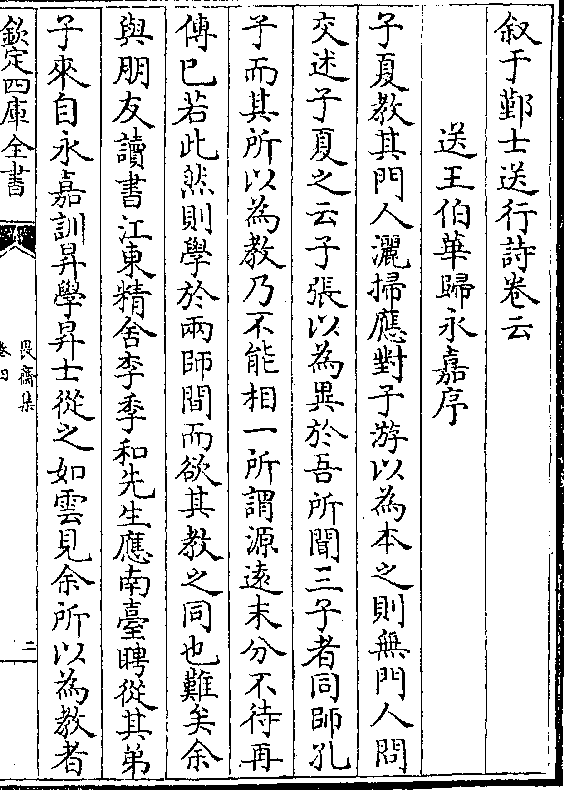 叙于鄞士送行詩卷云
送王伯華歸永嘉序
子夏教其門人灑掃應對子游以為本之則無門人問
交述子夏之云子張以為異於吾所聞三子者同師孔
子而其所以為教乃不能相一所謂源遠末分不待再
傳已若此然則學於兩師間而欲其教之同也難矣余
與朋友讀書江東精舍李季和先生應南臺聘從其弟
子來自永嘉訓昇學昇士從之如雲見余所以為教者
欽定四庫全書
畏齋集
卷四
二